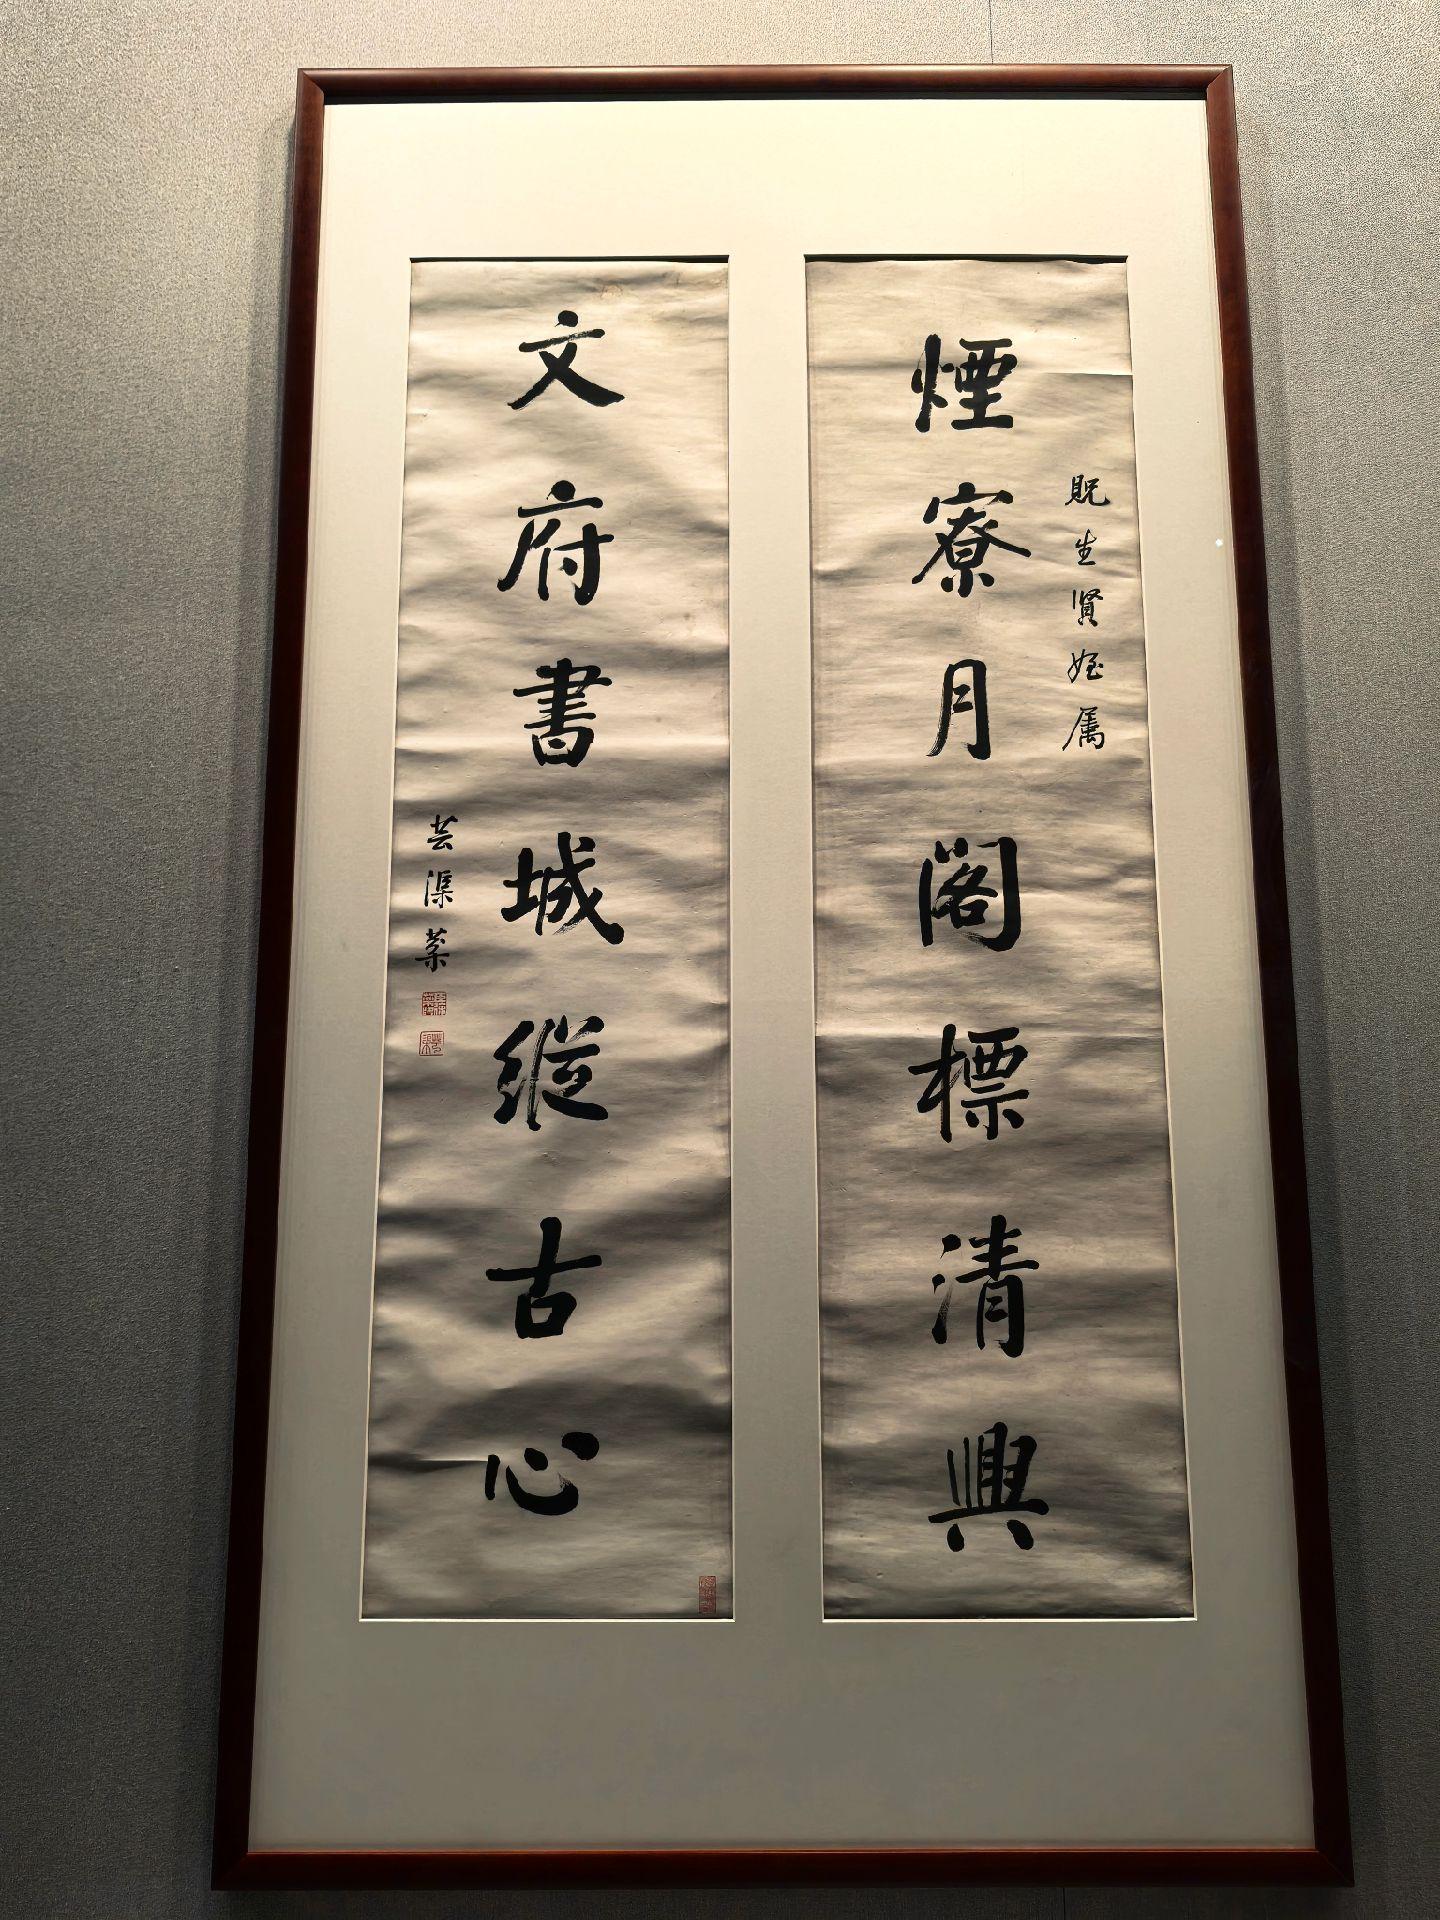 煙寮月阁標清興
貺生賢姪属
文府書城縱古心
芸渠棻